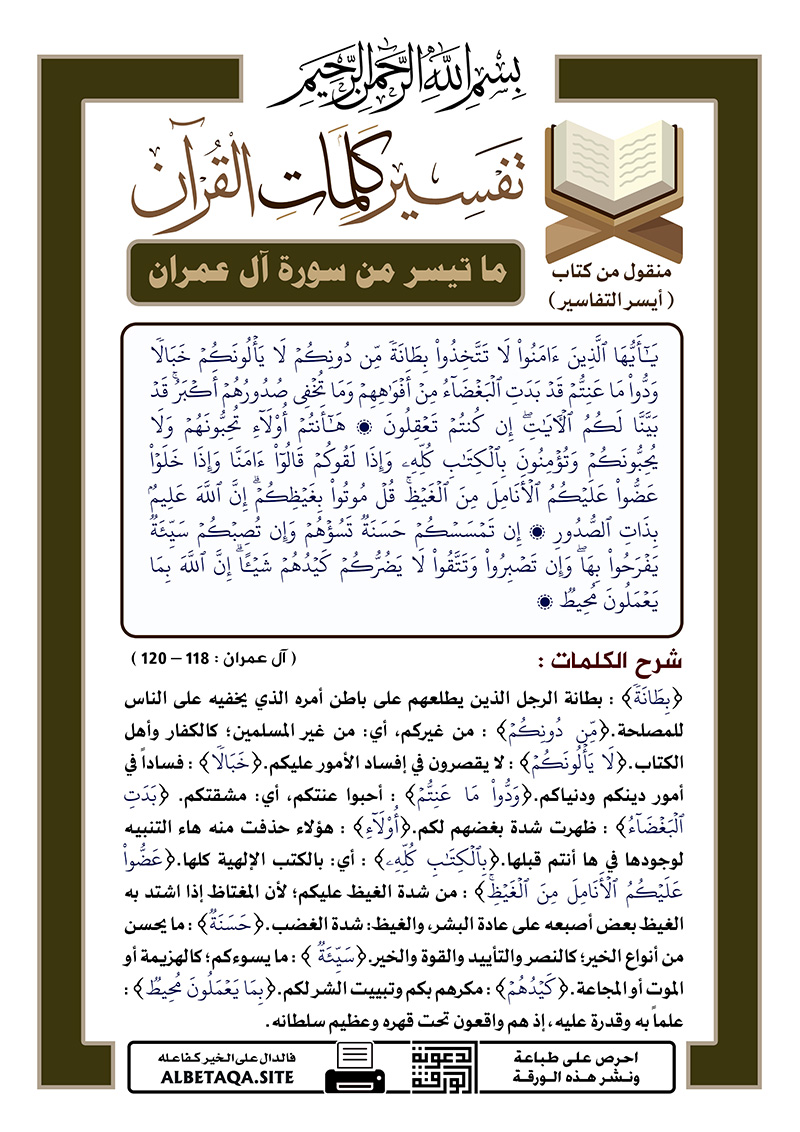 بِسْمِ اللَّهِ الرَّحْمَٰنِ الرَّحِيمِ
تَفْسِير كَلِمَاتِ القُرْآن
ما تيسر من سورة آل عمران
منقول من كتاب
( أيسر التفاسير )
يَـٰٓأَيُّهَا ٱلَّذِينَ ءَامَنُوا۟ لَا تَتَّخِذُوا۟ بِطَانَةً مِّن دُونِكُمْ لَا يَأْلُونَكُمْ خَبَالًا
وَدُّوا۟ مَا عَنِتُّمْ قَدْ بَدَتِ ٱلْبَغْضَآءُ مِنْ أَفْوَٰهِهِمْ وَمَا تُخْفِى صُدُورُهُمْ أَكْبَرُ ۚ قَدْ
بَيَّنَّا لَكُمُ ٱلْـَٔايَـٰتِ ۖ إِن كُنتُمْ تَعْقِلُونَ ۝ هَـٰٓأَنتُمْ أُو۟لَآءِ تُحِبُّونَهُمْ وَلَا
يُحِبُّونَكُمْ وَتُؤْمِنُونَ بِٱلْكِتَـٰبِ كُلِّهِۦ وَإِذَا لَقُوكُمْ قَالُوٓا۟ ءَامَنَّا وَإِذَا خَلَوْا۟
عَضُّوا۟ عَلَيْكُمُ ٱلْأَنَامِلَ مِنَ ٱلْغَيْظِ ۚ قُلْ مُوتُوا۟ بِغَيْظِكُمْ ۗ إِنَّ ٱللَّهَ عَلِيمٌۢ
بِذَاتِ ٱلصُّدُورِ ۝ إِن تَمْسَسْكُمْ حَسَنَةٌ تَسُؤْهُمْ وَإِن تُصِبْكُمْ سَيِّئَةٌ
يَفْرَحُوا۟ بِهَا ۖ وَإِن تَصْبِرُوا۟ وَتَتَّقُوا۟ لَا يَضُرُّكُمْ كَيْدُهُمْ شَيْـًٔا ۗ إِنَّ ٱللَّهَ بِمَا
يَعْمَلُونَ مُحِيطٌ ۝
شرح الكلمات :
( آل عمران : 118 – 120 )
﴿بِطَانَةً﴾ : بطانة الرجل الذين يطلعهم على باطن أمره الذي يخفيه على الناس
للمصلحة.﴿مِّن دُونِكُمْ﴾ : من غيركم، أي: من غير المسلمين؛ كالكفار وأهل
الكتاب.﴿لَا يَأْلُونَكُمْ﴾ : لا يقصرون في إفساد الأمور عليكم.﴿خَبَالًا﴾ : فساداً في
أمور دينكم ودنياكم.﴿وَدُّوا۟ مَا عَنِتُّمْ﴾ : أحبوا عنتكم، أي: مشقتكم. ﴿بَدَتِ
ٱلْبَغْضَآءُ﴾ : ظهرت شدة بغضهم لكم.﴿أُو۟لَآءِ﴾ : هؤلاء حذفت منه هاء التنبيه
لوجودها في ها أنتم قبلها.﴿بِٱلْكِتَـٰبِ كُلِّهِۦ﴾ : أي: بالكتب الإلهية كلها.﴿عَضُّوا۟
عَلَيْكُمُ ٱلْأَنَامِلَ مِنَ ٱلْغَيْظِ ۚ﴾ : من شدة الغيظ عليكم؛ لأن المغتاظ إذا اشتد به
الغيظ بعض أصبعه على عادة البشر، والغيظ: شدة الغضب.﴿حَسَنَةٌ﴾ : ما يحسن
من أنواع الخير؛ كالنصر والتأييد والقوة والخير.﴿سَيِّئَةٌ﴾ : ما يسوءكم؛ كالهزيمة أو
الموت أو المجاعة.﴿كَيْدُهُمْ﴾ : مكرهم بكم وتبييت الشر لكم.﴿بِمَا يَعْمَلُونَ مُحِيطٌ﴾ :
علماً به وقدرة عليه ، إذ هم واقعون تحت قهره وعظيم سلطانه .
احرص على طباعة
ونشر هذه الورقة
الورقة الدعوية
فالدال على الخير كفاعله
ALBETAQA.SITE